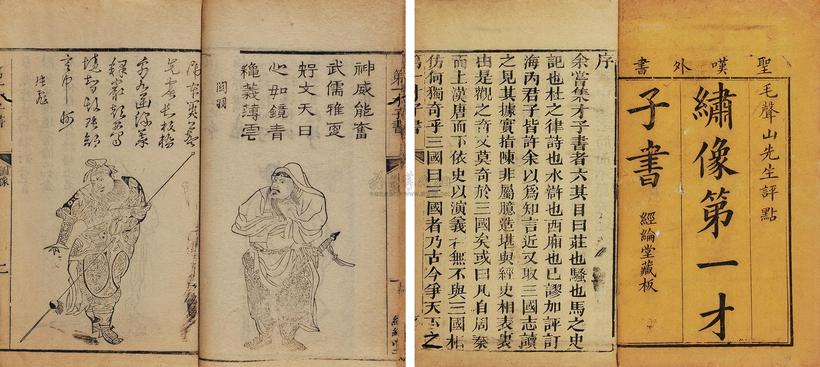 聖嘆外書
毛聲山先生評點
繡像第一才
子書
經綸堂藏板
序
余嘗集才子書者六其目曰莊也騷也馬之史
記也杜之律詩也水滸也西廂也已謬加評訂
海內君子皆許余以爲知言近又取三國志讀
之見其據實指陳非屬臆造堪與經史相表裏
由是觀之奇又莫奇於三國矣或曰凡自周秦
而上漢唐而下依史以演義者無不與三國相
彷何獨奇乎三國曰三國者乃古今爭天下之
第一才子書
第一才子書
神威能奮
武儒雅更
知文天日
心如鏡春
龝義薄雲
關羽
張飛
圖像